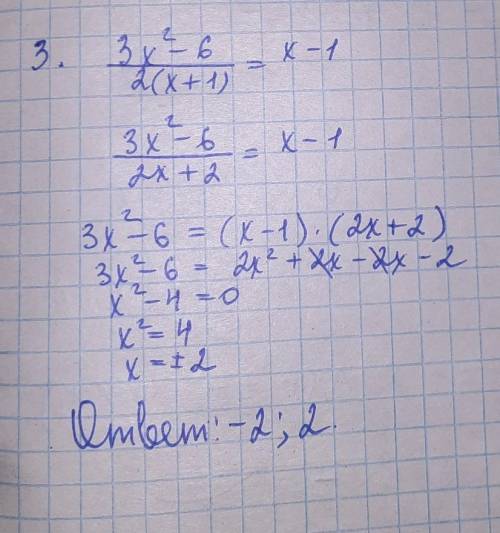 3. (3x² - 6)/(2(x+1)) = x - 1
(3x² - 6)/(2x + 2) = x - 1
3x² - 6 = (x - 1) · (2x + 2)
3x² - 6 = 2x² + 2x - 2x - 2
x² - 4 = 0
x² = 4
x = ±2
Ответ: -2; 2.